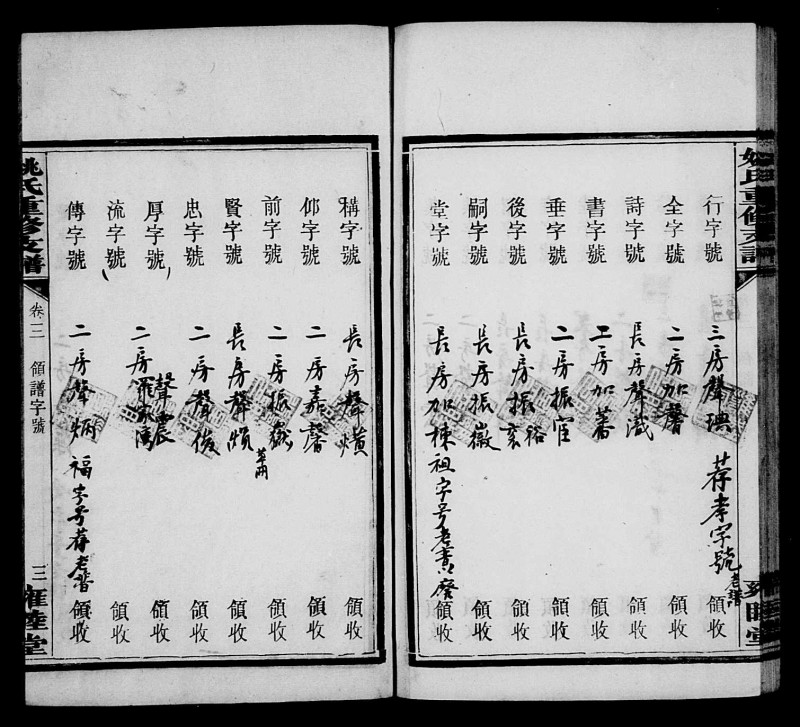 行字號 三房聲琠 荐孝字號老譜 領收
全字號 二房加馨 領收
詩字號 長房聲濈 領收
書字號 二房加蕃 領收
垂字號 二房振宦 領收
後字號 長房振裕 領收
嗣字號 長房振徽 領收
堂字號 長房加棟 祖字号老譜 領收
稱字號 長房聲熿 領收
仰字號 二房嘉馨 領收
前字號 二房振嶽 領收
賢字號 長房聲 領收
忠字號 二房聲俊 領收
厚字號 二房聲震 領收
流字號 領收
傳字號 二房聲炳 福字号荐老譜 領收
姚氏重修支譜 卷三 領譜字號 三 雍睦堂